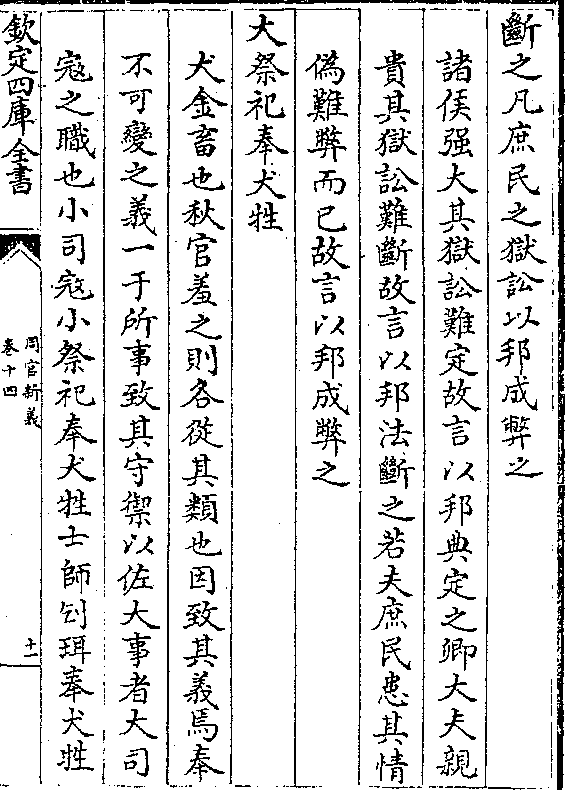 斷之凡庶民之獄訟以邦成弊之
諸侯强大其獄訟難定故言以邦典定之卿大夫親
貴其獄訟難斷故言以邦法斷之若夫庶民患其情
偽難弊而已故言以邦成弊之
大祭祀奉犬牲
犬金畜也秋官羞之則各從其類也因致其義焉奉
不可變之義一于所事致其守禦以佐大事者大司
宼之職也小司宼小祭祀奉犬牲士師刉珥奉犬牲
欽定四庫全書
周官新義
卷十四
十一